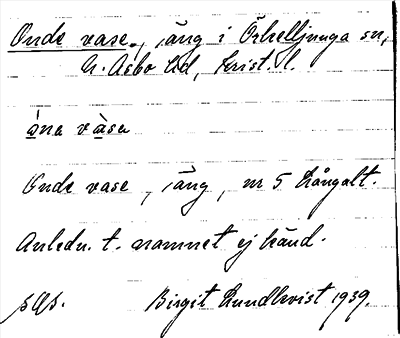 Onde vase, äng i Örkelljunga sn,
N. Åsbo hd, Krist. l.
òna vàsa
Onde vase, äng, nr 5 Långalt.
Anledn. t. namnet ej känd.
Birgit Lundkvist 1939.